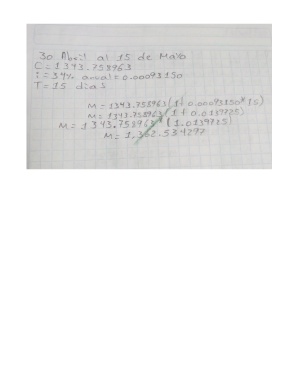 30 Abril al 15 de Mayo
C=1343.758963
i=34% anual=0.00093150
T=15 dias
M=1343.758963(1+0.00093150*15)
M=1343.758963(1+0.0139725)
M=1343.758963*(1.0139725)
M=1.362.534297